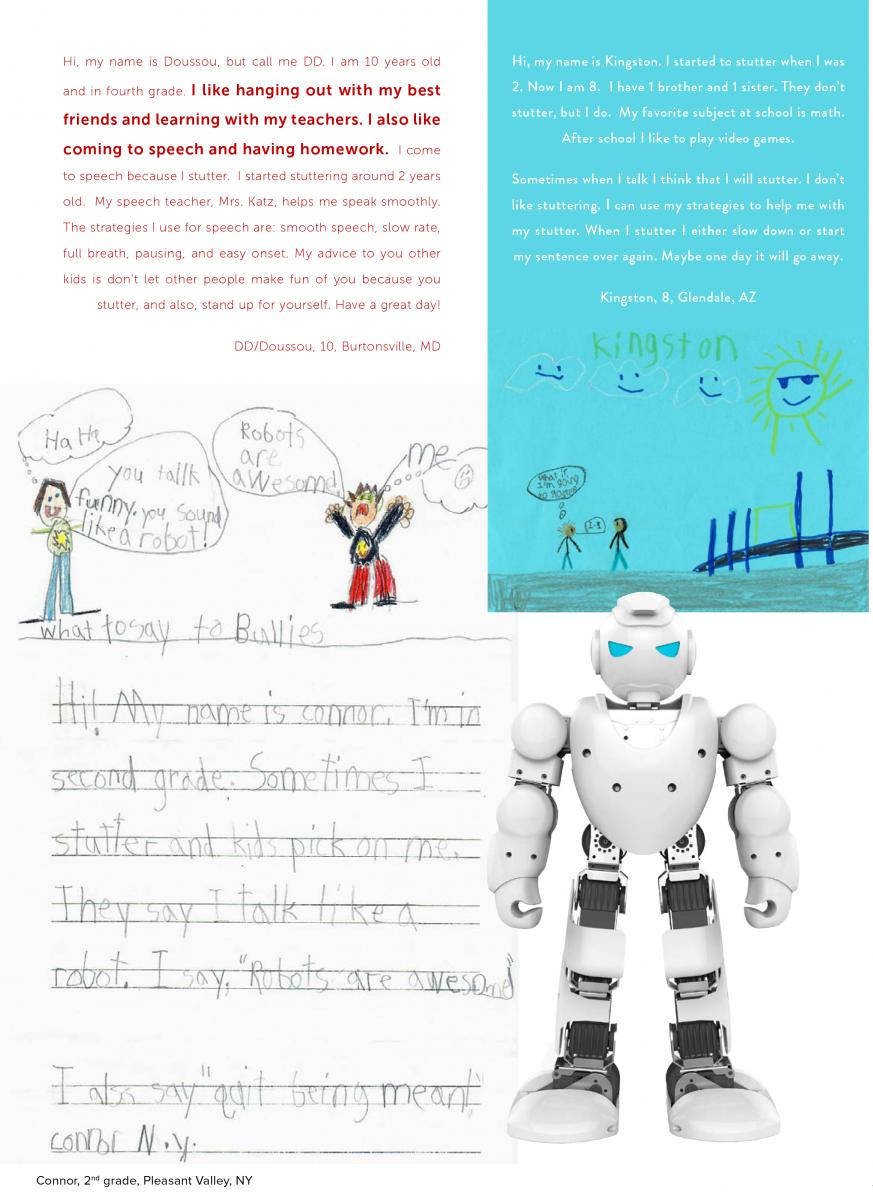 Hi, my name is Doussou, but call me DD. I am 10 years old
and in fourth grade. I like hanging out with my best
friends and learning with my teachers. I also like
coming to speech and having homework. I come
to speech because I stutter. I started stuttering around 2 years
old. My speech teacher, Mrs. Katz, helps me speak smoothly.
The strategies I use for speech are: smooth speech, slow rate,
full breath, pausing, and easy onset. My advice to you other
kids is don't let other people make fun of you because you
stutter, and also, stand up for yourself. Have a great day!
DD/Doussou, 10, Burtonsville, MD
Hi, my name is Kingston. I started to stutter when I was
2. Now I am 8. I have 1 brother and 1 sister. They don't
stutter, but I do. My favorite subject at school is math.
After school I like to play video games.
Sometimes when I talk I think that I will stutter. I don't
like stuttering. I can use my strategies to help me with
my stutter. When I stutter I either slow down or start
my sentence over again. Maybe one day it will go away.
Kingston, 8, Glendale, AZ
Kingston
what if
I'm going
to
I-I
Ha Ha
you tallk
funny. you sound
like a robot!
Robots
are
awesome
me
what to say to Bullies
Hi! My name is connor. I'm in
second grade. Sometimes I
stutter and kids pick on me.
They say I talk like a
robot. I say, "Robots are awesome"
I also say "quit being mean!"
connor N.y.
Connor, 2nd grade, Pleasant Valley, NY